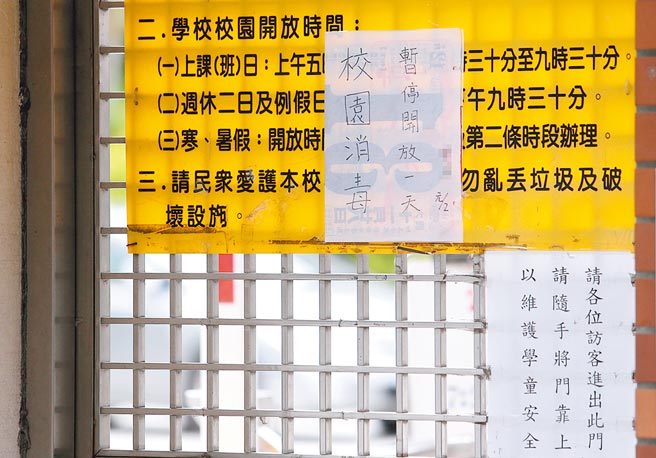 二.學校校園開放時間：
(一)上課(班)日：上午五
時三十分至九時三十分。
(二)週休二日及例假日
午九時三十分。
(三)寒、暑假：開放時
第二條時段辦理。
三.請民衆愛護本校
勿亂丟垃圾及破
壞設施。
暫停開放一天
校園消毒
請各位訪客進出此門
請隨手將門靠上
以維護學童安全